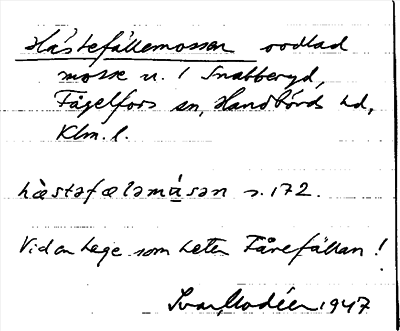 Hästefällemossen oodlad
mosse u. / Snabberyd,
Fågelfors sn, Handbörds hd,
Klm. l.
hæ̀stəfæləmåsən s. 172.
Vidare lege som heter Fårefällan!
Ivar Modéer 1947